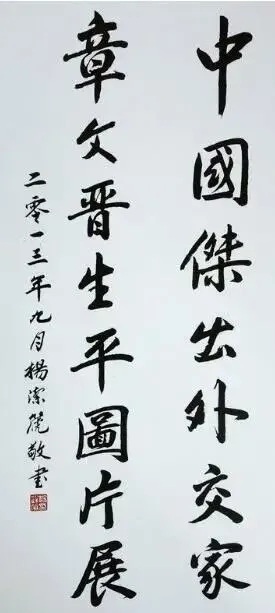 中國傑出外交家
章文晋生平圖片展
二零一三年九月楊潔篪敬書